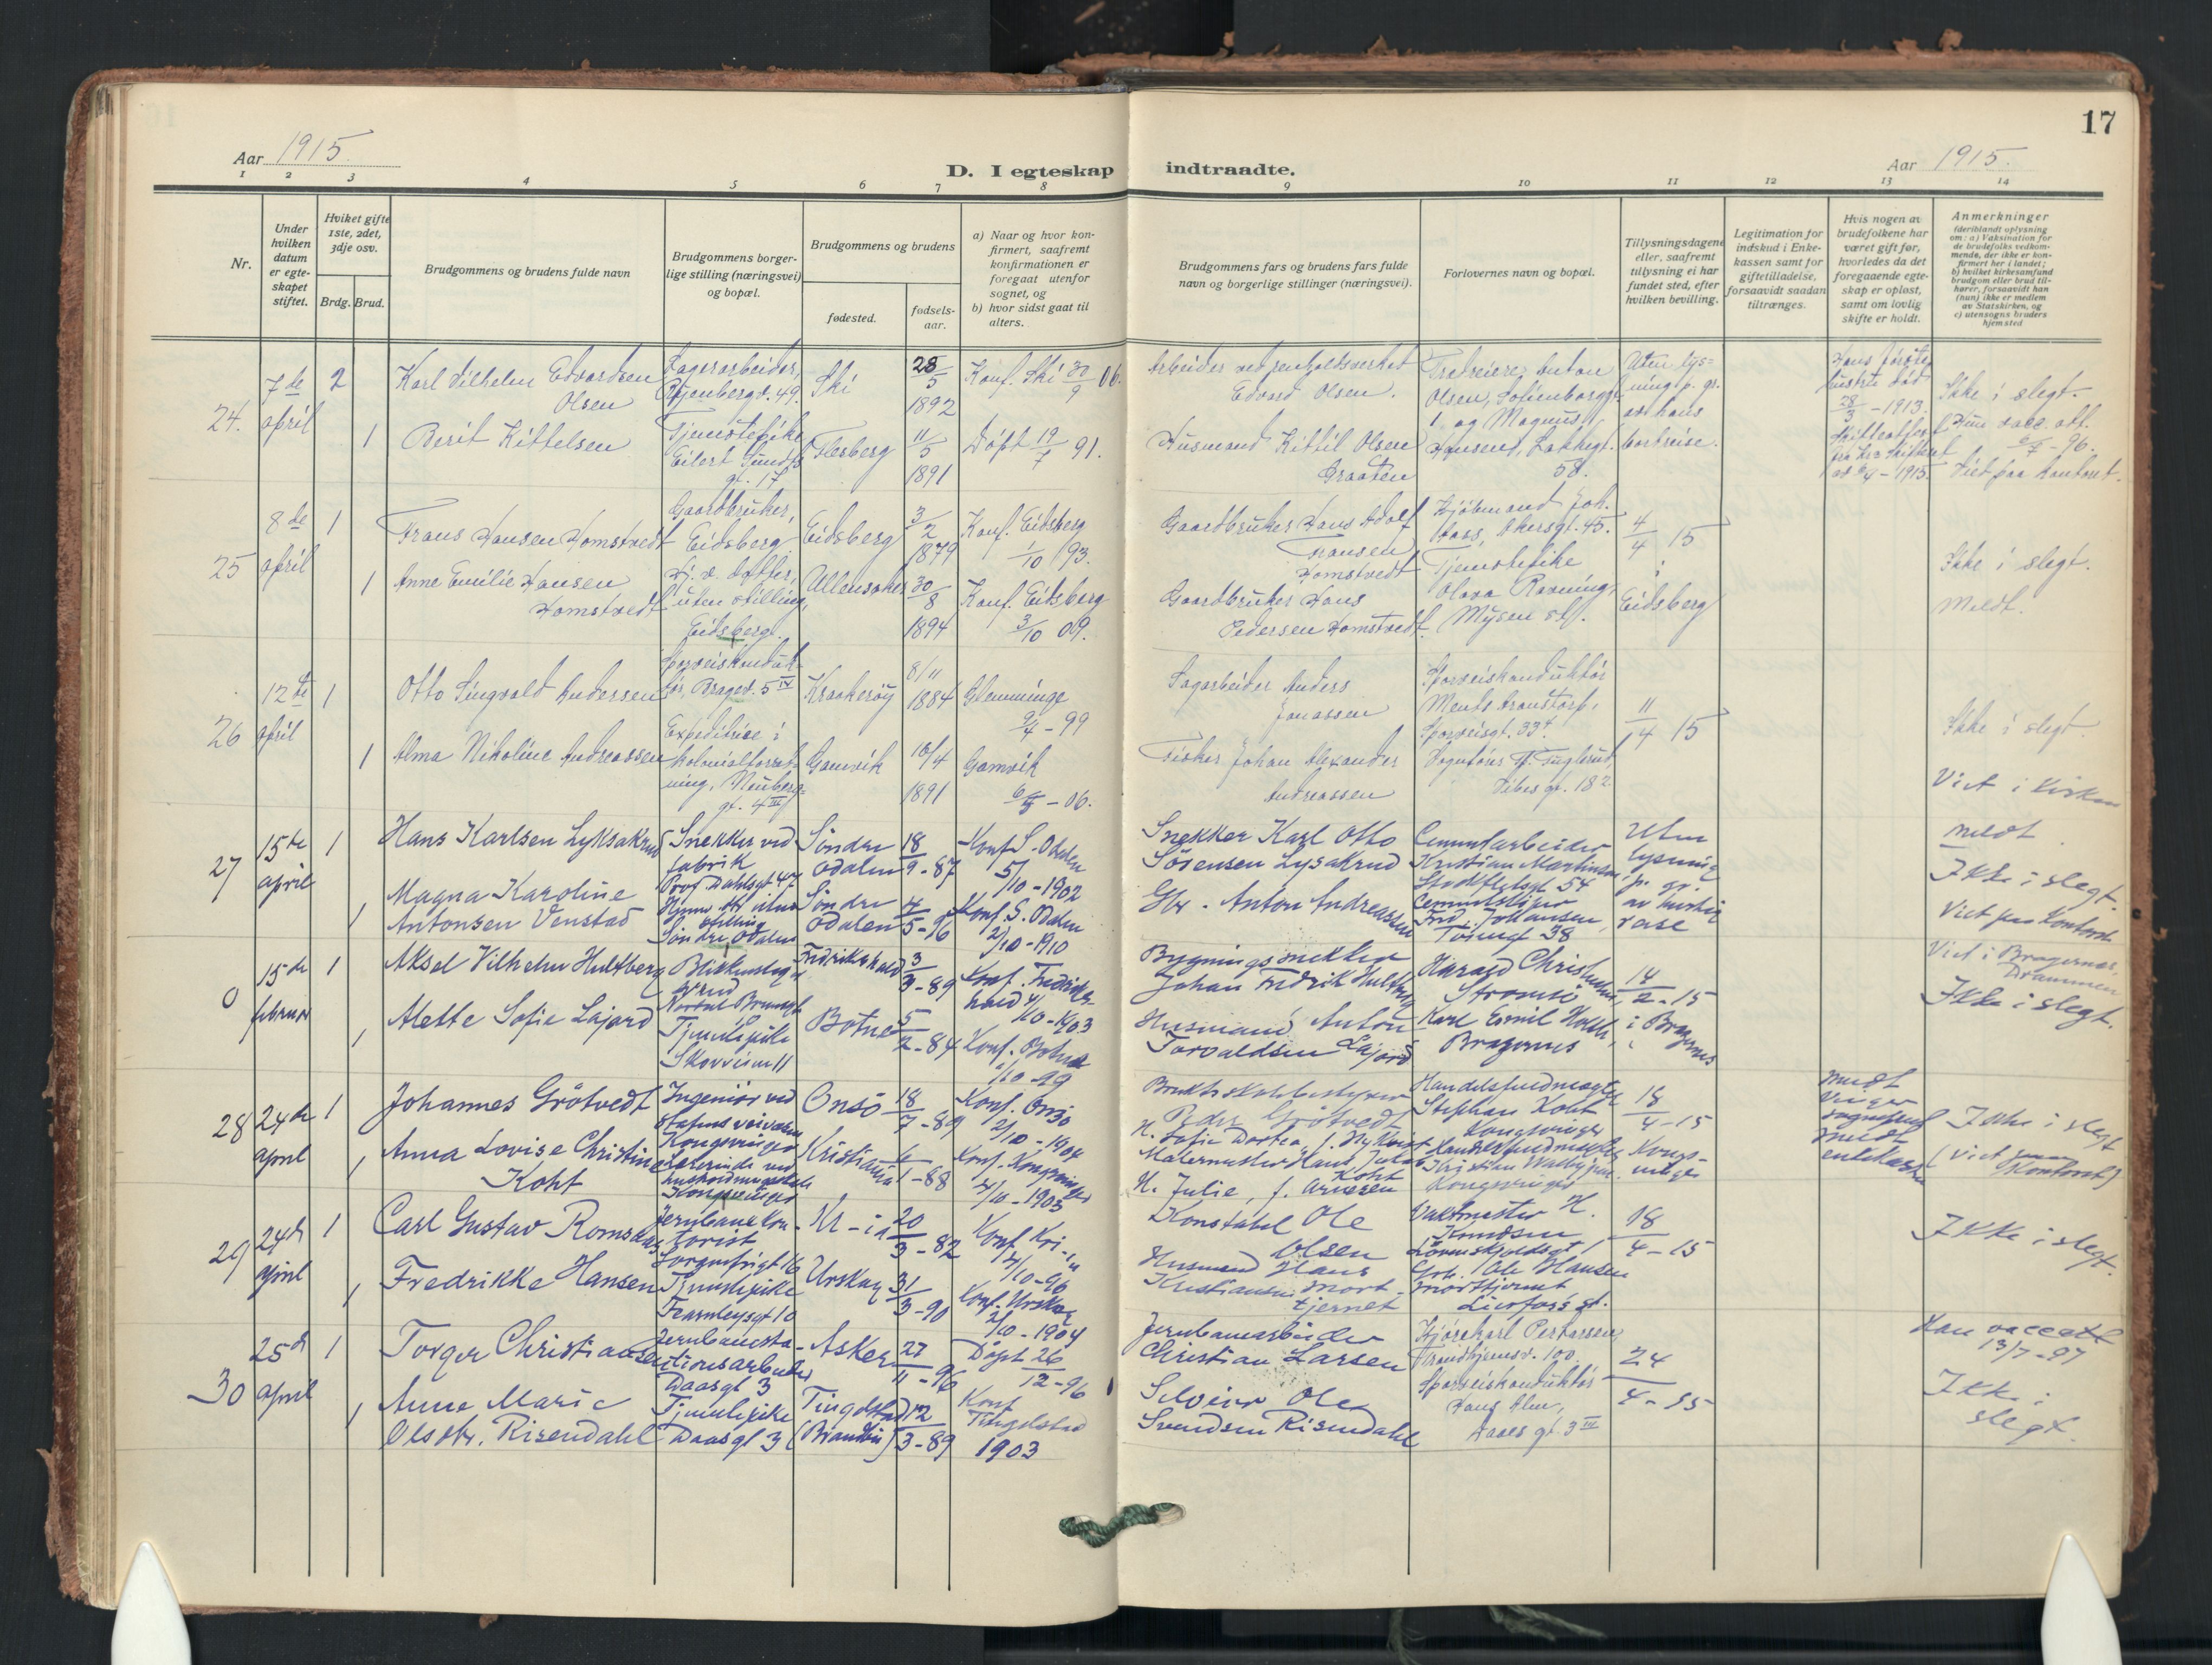 17
Aar 1915.
D. I egteskap indtraadte.
Aar 1915.
1 2 3 4 5 6 7 8 9 10 11 12 13 14
Nr.
Under
hvilken
datum
er egte-
skapet
stiftet.
Hvilket gifte
1ste, 2det,
3dje osv.
Brdg. Brud.
Brudgommens og brudens fulde navn
Brudgommens borger-
lige stilling (næringsvei)
og bopæl.
Brudgommens og brudens
fødested.
fødsels-
aar.
a) Naar og hvor kon-
firmert, saafremt
konfirmationen er
foregaat utenfor
sognet, og
b) hvor sidst gaat til
alters.
Brudgommens fars og brudens fars fulde
navn og borgerlige stillinger (næringsvei).
Forlovernes navn og bopæl.
Tillysningsdagene
eller, saafremt
tillysning ei har
fundet sted, efter
hvilken bevilling.
Legitimation for
indskud i Enke-
kassen samt for
giftetilladelse,
forsaavidt saadan
tiltrænges.
Hvis nogen av
brudefolkene har
været gift før,
hvorledes da det
foregaaende egte-
skap er opløst,
samt om lovlig
skifte er holdt.
Anmerkninger
(deriblandt oplysning
om: a) Vaksination for
de brudefolks vedkom-
mende, der ikke er kon-
firmert her i landet;
b) hvilket kirkesamfund
brudgom eller brud til-
hører, forsaavidt han
(hun) ikke er medlem
av Statskirken, og
c) utensogns bruders
hjemsted
24.
7de
april
2
Karl Vilhelm Edvardsen
Olsen
Lagerarbeider,
49.
Ski
28/5
1892
Konf. Ski 30/9 06.
Arbeider ved renholdsverket
Edvard Olsen.
Anton
Olsen, Sofienberggt.
1 og Magnus
Uten lys-
ning p. gr.
av hans
bortreise.
Hans første
hustru død
28/3 - 1913.
Ikke i slegt.
1
Berit Kittelsen
Tjenestepike
Eilert Sundts
gt. 17
Flesberg
11/5
1891
Døpt 19/7 91.
Husmand Kittil Olsen
Braaten
Hansen,
58.
1915
Hun vacc. att.
- 96.
Viet paa kontoret.
25
8de
april
1
Frans Hansen Homstvedt
Gaardbruker,
Eidsberg
Eidsberg
3/2
1879
Konf. Eidsberg
1/10 93.
Gaardbruker Hans Adolf
Fransen
Homstvedt
Kjøbmand Joh.
Aass, Akersgt. 45.
4/4 15
i
Eidsberg
Ikke i slegt.
Meldt.
1
Anne Emilie Hansen
Homstvedt
Hj. v. datter,
uten stilling,
Eidsberg.
Ullensaker
30/8
1894
Konf. Eidsberg
3/10 09.
Gaardbruker Hans
Pedersen Homstvedt.
Tjenestepike
Olava
Mysen st.
26
12te
april
1
Otto Singvald Andersen
Sporveiskonduk-
tør, Bragev. 5 IV
Kraakerøy
8/11
1884
Glemminge
9/4 - 99
Sagarbeider Anders
Jonassen
Sporveiskonduktør
Sporveisgt. 33
11/4 15
Ikke i slegt.
1
Alma Nikoline Andreassen
Expeditrice i
kolonialforret-
ning, Neuberg-
gt. 4 III
Gamvik
10/4
1891
Gamvik
- 06.
Fisker Johan Alexander
Andreassen
Vognfører
gt. 18
Viet i kirken
27
15de
april
1
Hans Karlsen Lyksakrud
Snekker ved
fabrik
Prof Dahlsgt 47
Søndre
Odalen
18/9 - 87
Konf S. Odalen
5/10 - 1902
Snekker Karl Otto
Sørensen Lysakrud
Cementarbeider
Kristian Martinsen
54
Uten
lysning
p. gr.
av hurtig
reise
meldt
Ikke i slegt.
1
Magna Karoline
Antonsen Venstad
Hjemv dtr uten
stilling
Søndre Odalen
Søndre
Odalen
4/5 - 96
Konf. S. Odalen
2/10 - 1910
Gbr. Anton Andreassen
Cementstøper
Fred. Johansen
38
Viet paa Kontoret
0
15de
februar
1
Aksel Vilhelm Hultberg
svend
Fredrikshald
3/3 - 89
Konf. Fredriks-
hald 4/10 - 1903
Bygningssnekker
Johan Fredrik Hultberg
Harald Christensen
Strømsø
14/2 - 15
Viet i Bragernes,
Drammen
Ikke i slegt.
1
Alette Sofie Lajord
Tjenestepike
Skovveien 11
Botne
5/2 - 84
Konf. Botne
/10 - 99
Husmand Anton
Torvaldsen Lajord
Karl Emil Holth,
Bragernes
i Bragernes
28
24de
april
1
Johannes Grøtvedt
Ingeniør ved
statens veivæsen
Kongsvinger
Onsø
18/7 - 89
Konf. Onsø
2/10 - 1904
Bruksskolebestyrer
Peder Grøtvedt
H. Sofie Dortea, f. Nykvist
Handelsfuldmægtig
Stephan Koht
Kongsvinger
18/4 - 15
Kongs-
vinger
meldt
Vinger
sogneprest
meldt
enkekassen
Ikke i slegt
(viet paa
Kontoret)
1
Anna Lovise Christine
Koht
Lærerinde ved
husholdningsskole
Kongsvinger
Kristiania
6/1 - 88
Konf. Kongsvinger
4/10 - 1903
Malermester Hans
Koht
H. Julie, f. Arnesen
Handelsfuldmægtig
Kristian
Kongsvinger
29
24de
april
1
Carl Gustav Romsdas
Jernbanekon-
torist
Sorgenfrigt 16
Kr-ia
20/3 - 82
Konf Kri-ia
/10 - 96
Konstabel Ole
Olsen
Vaktmester H.
Knudsen
Løvenskjoldsgt
18/4 - 15
Ikke i slegt.
1
Fredrikke Hansen
Tjenestepike
Fearnleysgt 10
Urskog
31/3 - 90
Konf. Urskog
2/10 - 1904
Husmand Hans
Kristiansen Mort-
tjernet
Gbr. Ole Hansen
Morttjernet
st.
30
25de
april
1
Torger Christiansen
Jernbanesta-
tionsarbeider
Daasgt 3
Asker
27/11 - 96
Døpt 26/12 - 96
Jernbanearbeider
Christian Larsen
Trondhjemsv. 100
24/4 - 15
Han vacc att
13/7 - 97
Ikke i
slegt.
1
Anne Marie
Olsdtr. Risendahl
Tjenestepike
Daasgt 3
Tingelstad
(Brandbu)
12/3 - 89
Konf
Tingelstad
1903
Selveier Ole
Svendsen Risendahl
Sporveiskonduktør
Hans Alm,
gt. 3 III